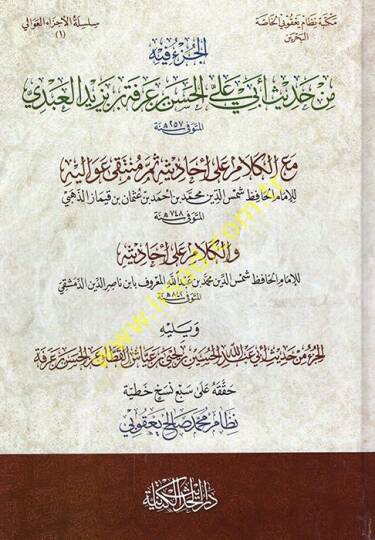 مكتبة نظام يعقوبي الخاصة
البحرين
سلسلة الأجزاء العوالي
(١)
الجزء فيه
من حديث أبي علي الحسن بن عرفة بن يزيد العبدي
المتوفى سنة ٢٥٧هـ
مع الكلام على أحاديثه ثم منتقى عواليه
للإمام الحافظ شمس الدين محمد بن أحمد بن عثمان بن قيماز الذهبي
المتوفى سنة ٧٤٨هـ
والكلام على أحاديثه
للإمام الحافظ شمس الدين محمد بن عبدالله المعروف بابن ناصر الدين الدمشقي
المتوفى سنة ٨٤٢هـ
ويليه
الجزء من حديث أبي عبدالله الحسين بن يحيى بن عياش القطان عن الحسن بن عرفة
حققه على سبع نسخ خطية
نظام محمد صالح يعقوبي